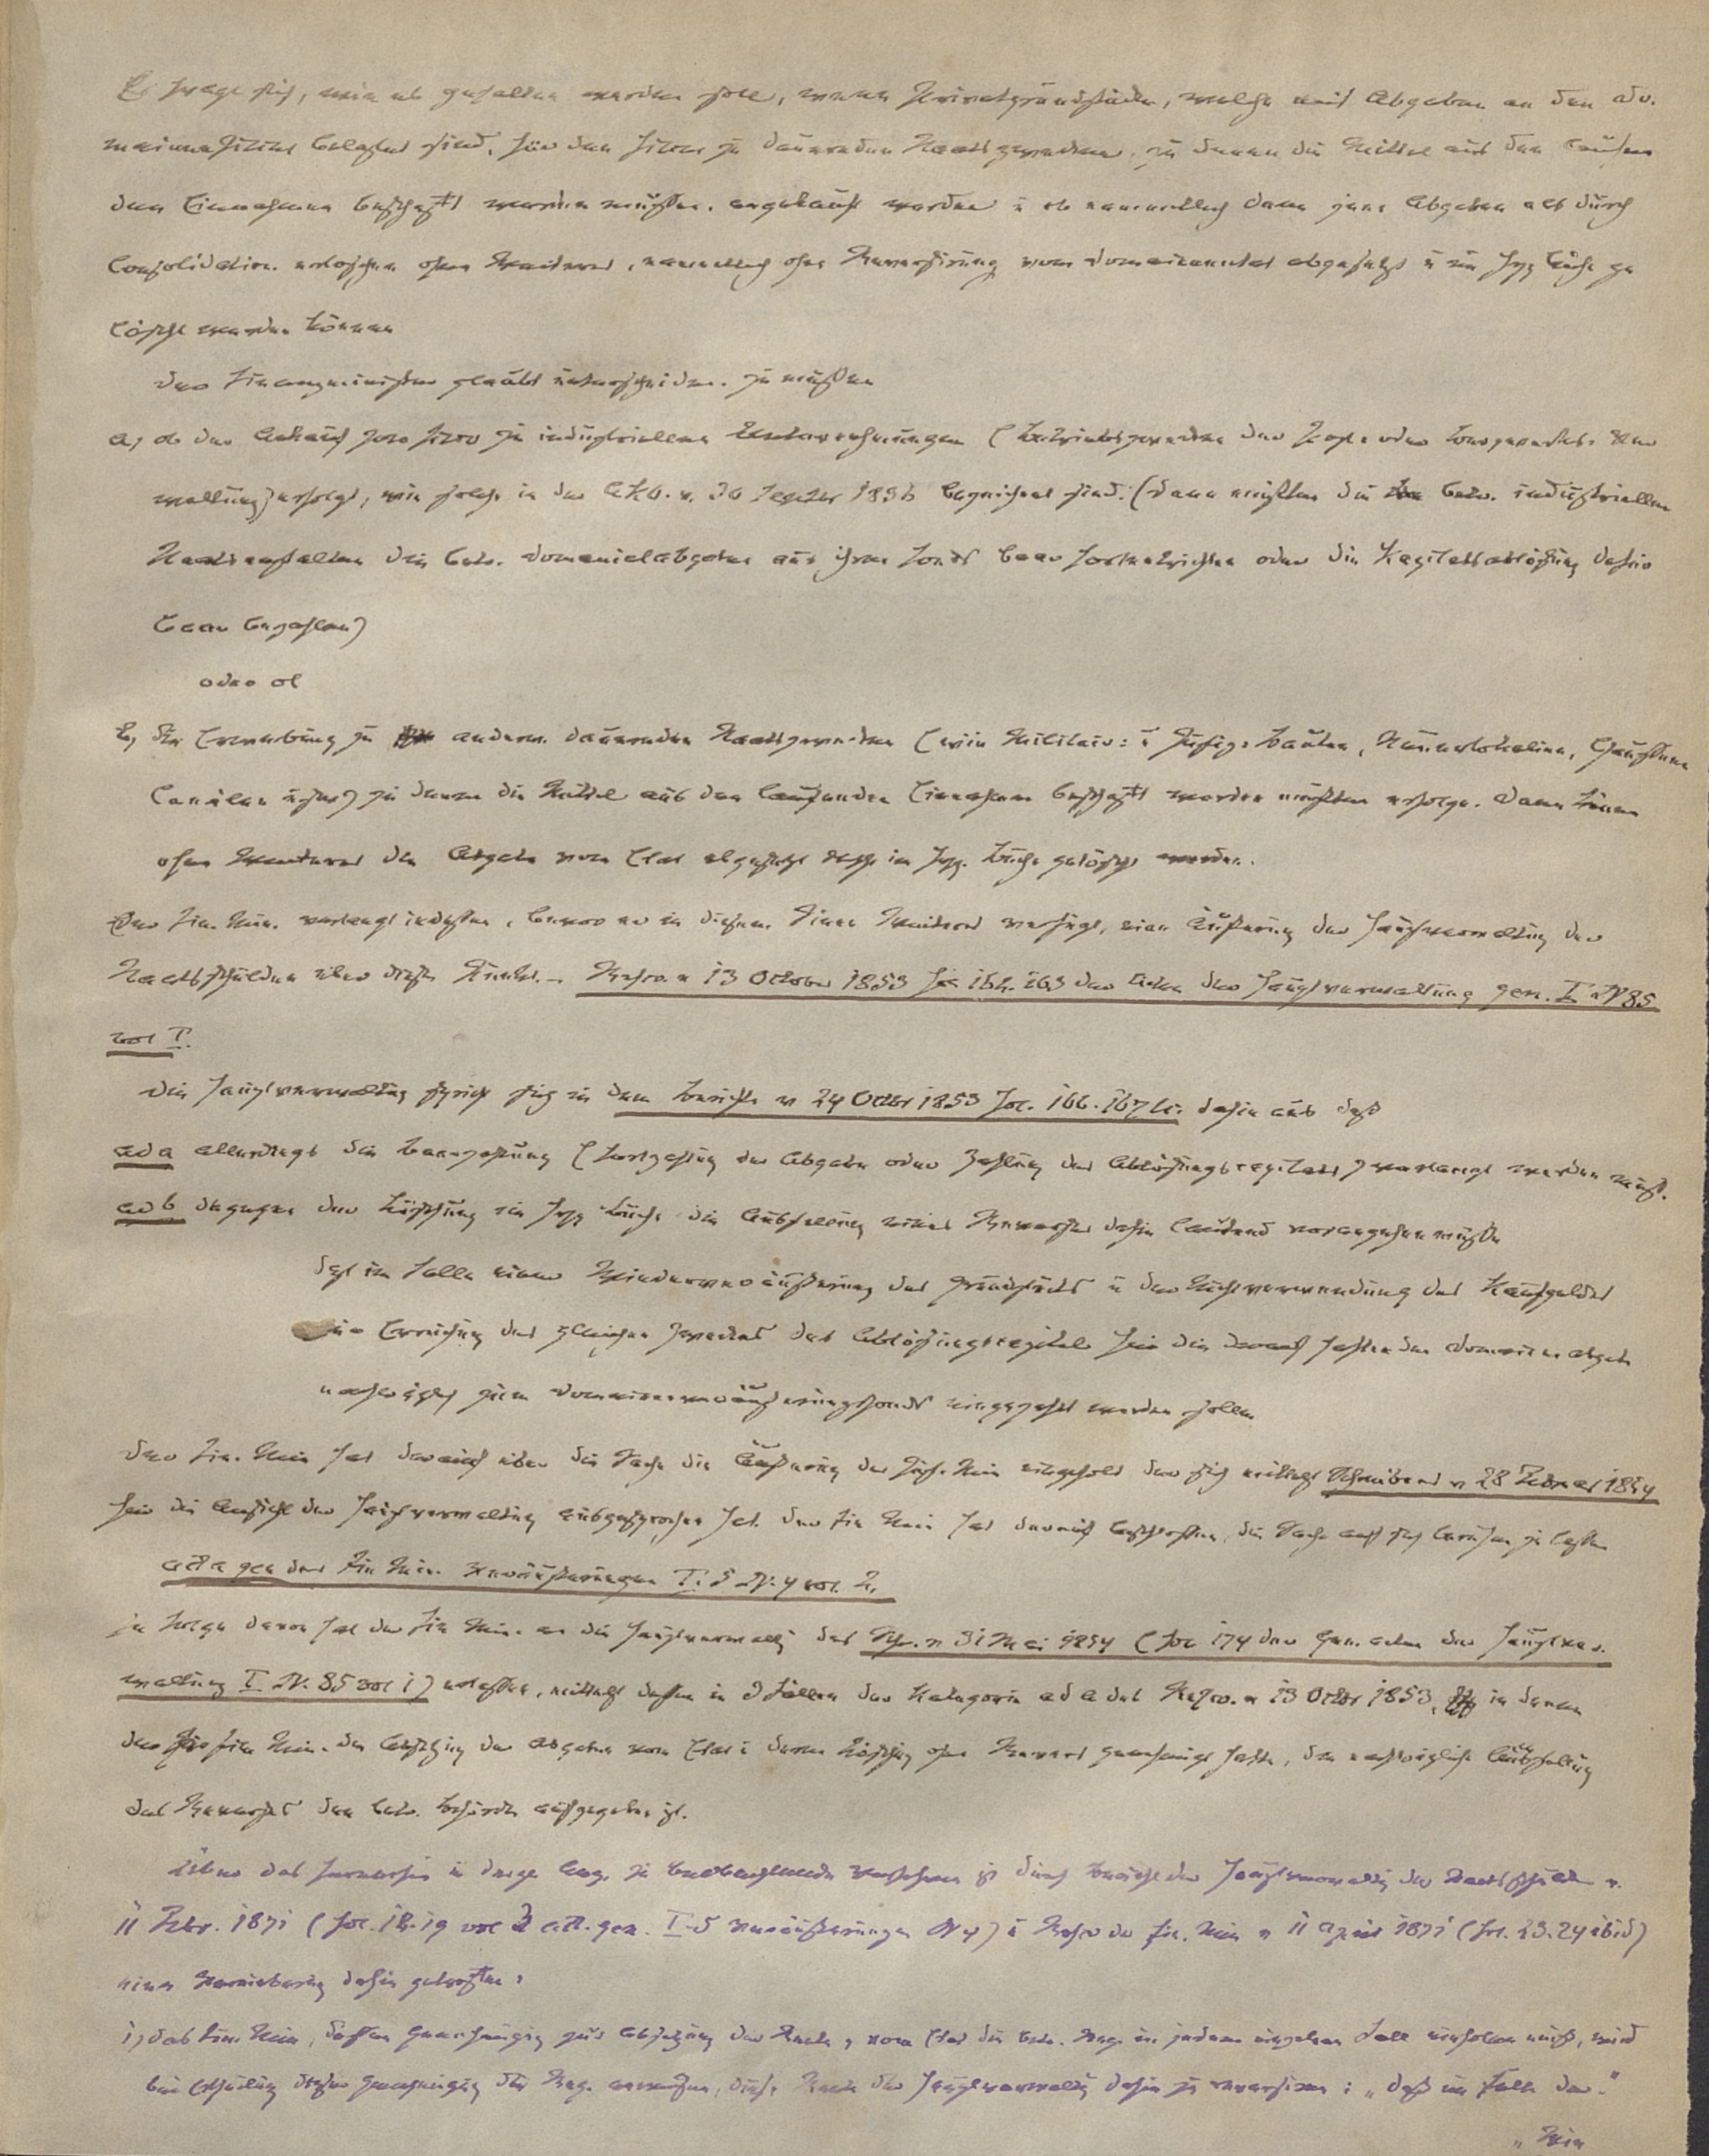 Es frage sich, wie es gehalten werden solle, wenn Privatgrundstücke, welche mit Abgaben an den Do-
mainenfiskus belastet sind, für den Fiscus zu dauernden Staatszwecken, zu denen die Mittel aus den laufen
den Einnahmen beschafft werden müssen, angekauft werden u ob namentlich dann jene Abgaben als durch
Consolidation erloschen ohne Weiteres, namentlich ohne Reversirung vom Domainenetat abgesetzt u im Hyp. Buche ge
löscht werden können
Der Finanzminister glaubt unterscheiden zu müssen
a, ob der Ankauf pro fisco zu industriellen Unternehmungen (Betriebszwecken der Post oder Bergwerks-Ver
waltung) erfolgt, wie solche in der AKO. v. 30 1836 bezeichnet sind. (dann müßten die betr. industriellen
Staatsanstalten die betr. Domanialabgaben aus ihrem Fonds baar fortentrichten oder die Kapitalsablösung dafür
baar bezahlen)
oder ob
b, die Erwerbung zu anderen dauernden Staatszwecken (wie Militair- u Justiz-Bauten, Chausseen
Canälen usw) zu denen die Mittel aus den laufenden Einnahmen beschafft werden müßten erfolge. Dann könne
ohne Weiteres die Abgabe vom Etat abgesetzt resp im Hyp. Buche gelöscht werden.
Der Fin. Min. verlangt indessen, bevor er in diesem Sinne Weiteres verfügt, eine Äußerung der Hauptverwaltung der
Staatsschulden über diesen Punkt. – Rescr. v 13 October 1853 Fol 162. 163 der Akten der Hauptverwaltung gen. I No 85
vol I.
Die Hauptverwaltung spricht sich in dem Berichte v 24 Octbr 1853 Fol. 166. 167 dahin aus daß
ad a allerdings die Baarzahlung (Fortzahlung der Abgabe oder Zahlung des Ablösungscapitals) verlangt werden muß.
ad b dagegen der Löschung im Hyp Buche die Ausstellung eines Reverses dahin lautend vorangehen müßte
daß im Falle einer Wiederveräußerung des Grundstücks u der Nichtverwendung des Kaufgeldes
zur Erreichung des gleichen Zweckes das Ablösungscapital für die darauf haftenden Domainenabgabe
nachträglich zum Domainenveräußerungsfonds eingezahlt werden solle.
Der Fin. Min hat darauf über die Sache die Äußerung des Just. Min eingeholt der sich mittelst Schreibens v 28 Februar 1854
für die Ansicht der Hauptverwaltung ausgesprochen hat. Der Fin Min hat darauf beschlossen, die Sache auf sich beruhen zu lassen
acta gen des Fin Min. Veräußerungen I. 5 No. 4 vol. 2.
In Folge davon hat der Fin Min. an die Hauptverwaltg das Schr. v 31 Mai 1854 (Fol 174 der Gen. Acten der Hauptver-
waltung I. No. 85 vol 1) erlassen, mittelst dessen in 3 Fällen der Kategorie ad a des Rescr. v 13 Octbr 1853, in denen
der Fin Min. die Absetzung der Abgabe vom Etat u deren Löschung ohne Revers genehmigt hatte, die nachträgliche Ausstellung
des Reverses den betr. Behörden aufgegeben ist.
Über das fernerhin in dieser Bez. zu beobachtende Verfahren ist durch Bericht der Hauptverwaltg der Staatsschulden v.
11 Febr. 1871 (Fol. 18. 19 vol 2 act. gen. I-5 Veräußerungen No 4) u Rescr des Fin. Min v 11 April 1871 (Fol. 23. 24 ibid)
eine Vereinbarung dahin getroffen:
1, das Fin. Min, dessen Genehmigung zur Absetzung der Rente vom Etat die betr. Reg. in jedem einzelnen Falle einholen muß, wird
bei Ertheilung dieser Genehmigung die Reg. anweisen, diese Rente der Hauptverwaltg dahin zu reversiren: „daß im Falle der"
„Wie